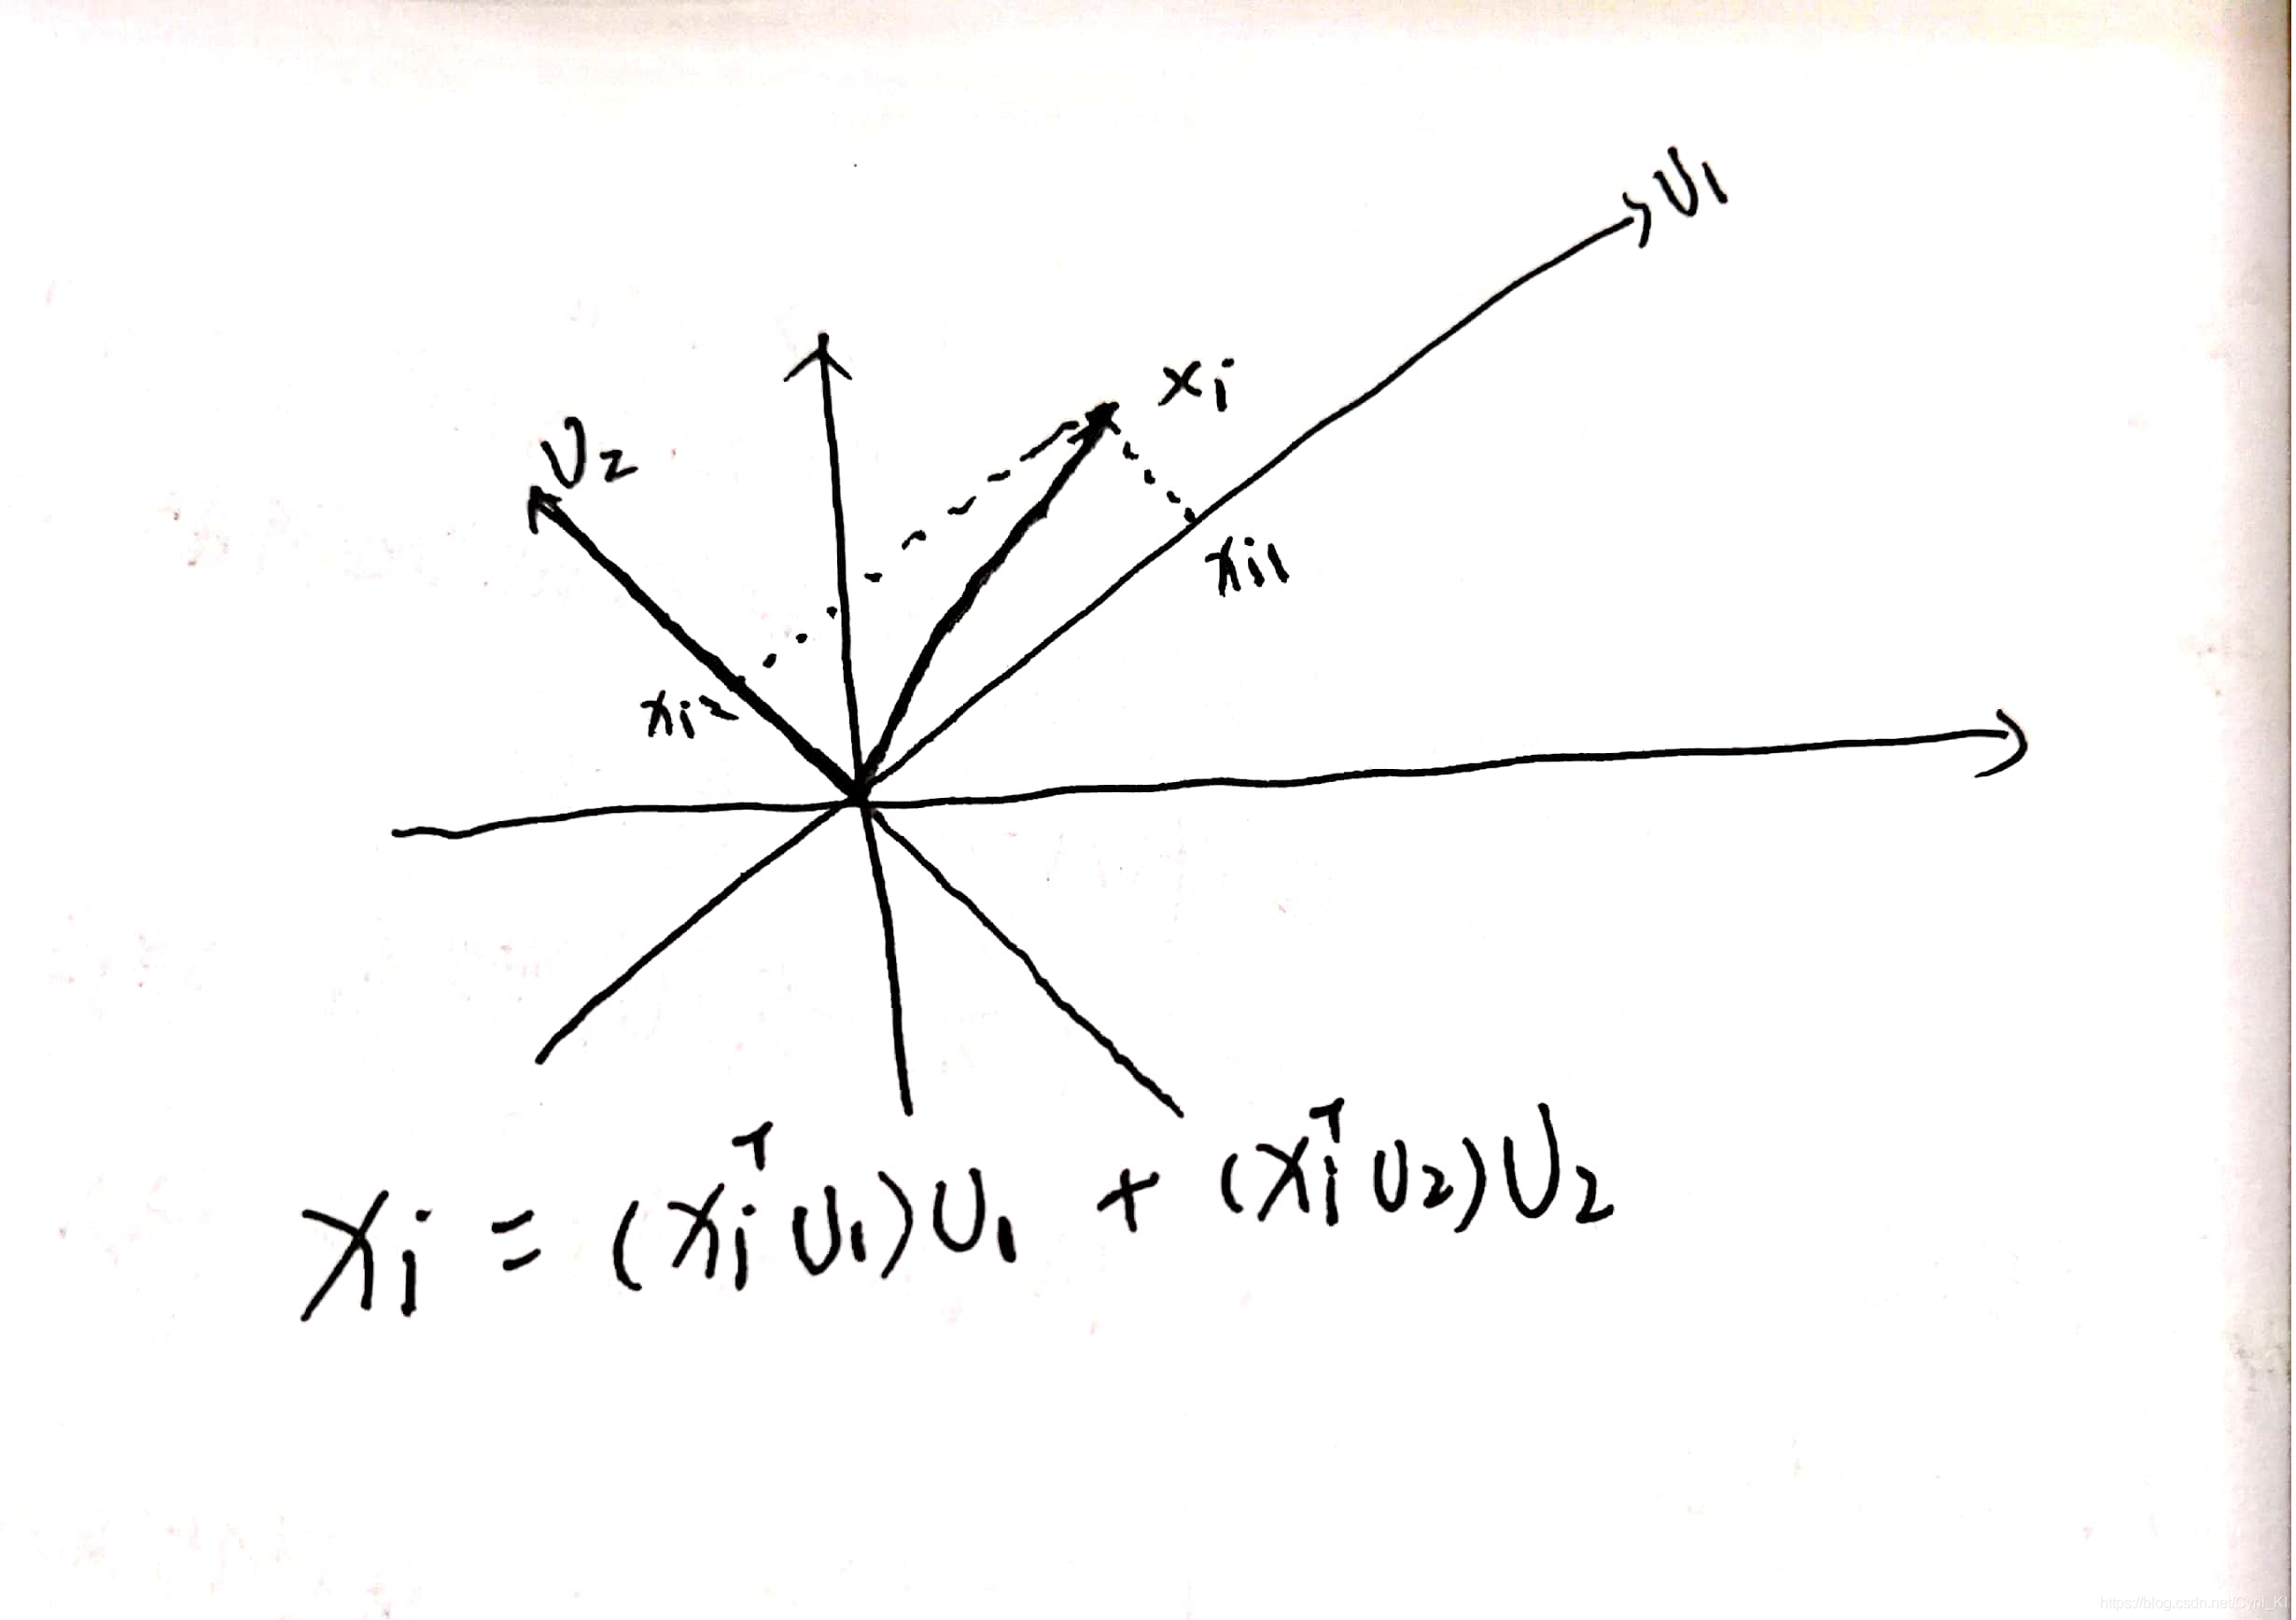 U1
xi
U2
xi1
xi2
xi = (xiᵀ U1) U1 + (xiᵀ U2) U2
https://blog.csdn.net/Cyril_KI